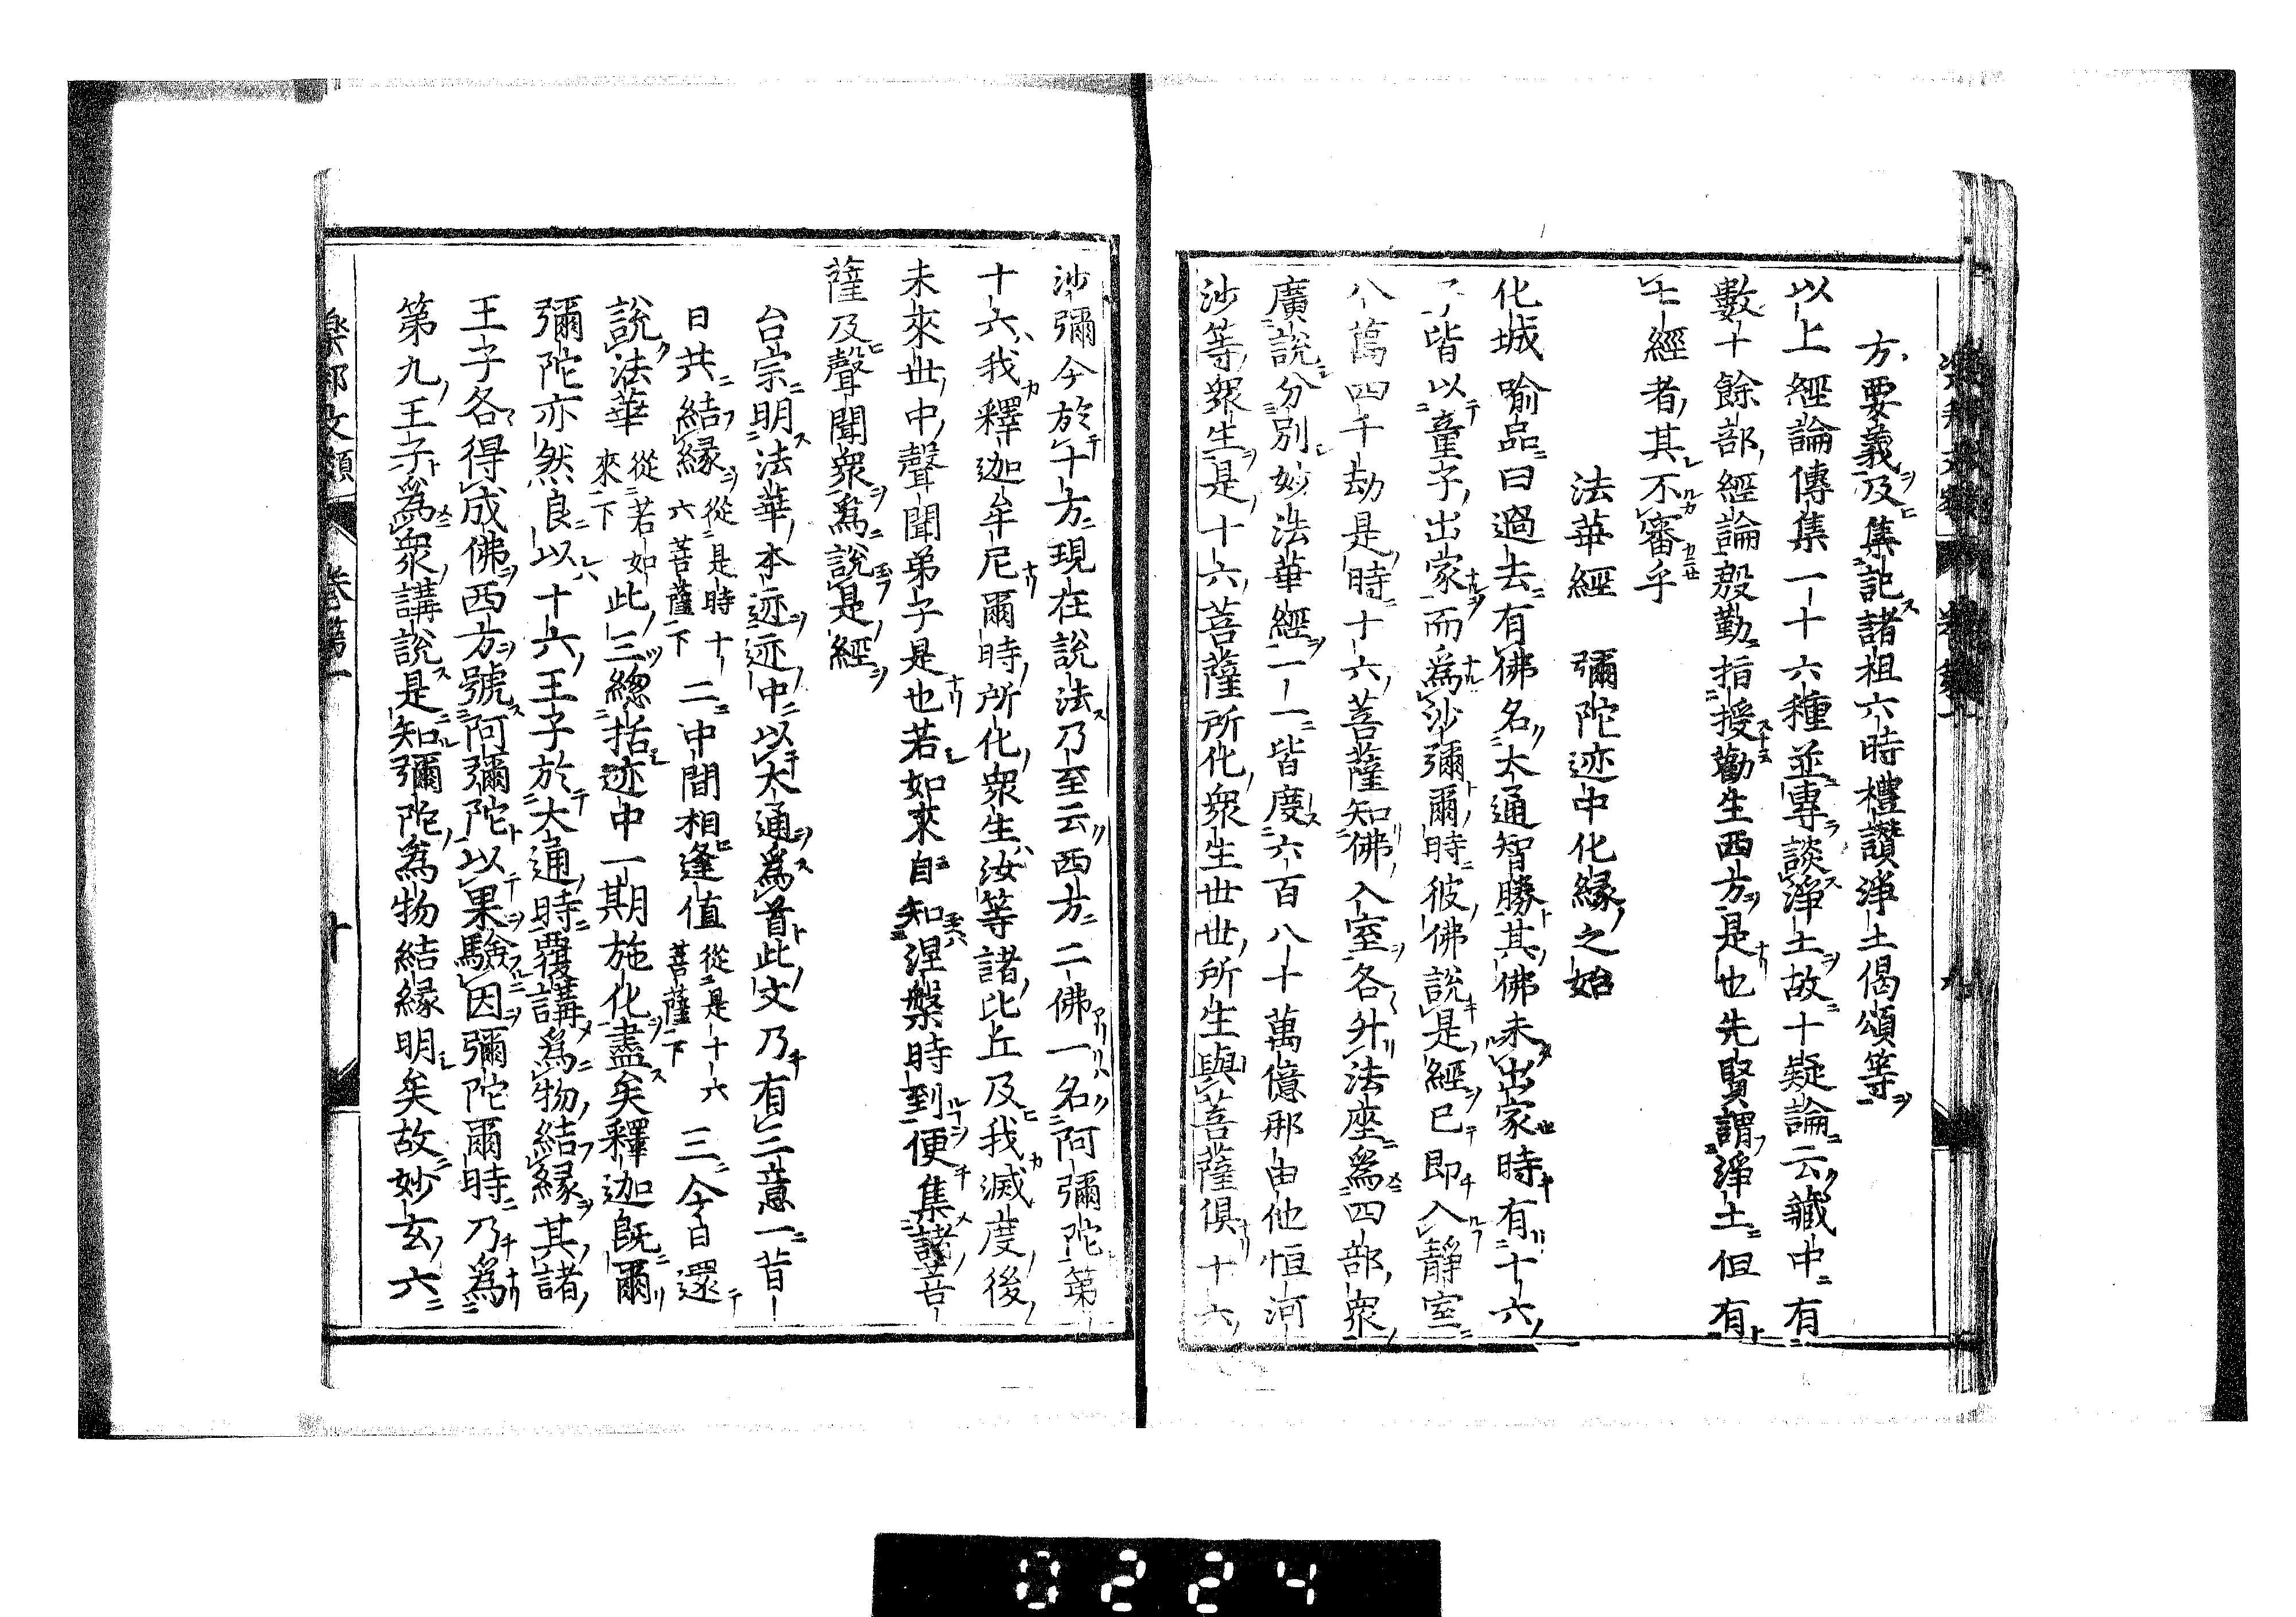 方要義及集記諸祖六時禮讚淨土偈頌等
以上經論傳集一十六種並專談淨土故十疑論云藏中有
數十餘部經論殷勤指授勸生西方是也先賢謂淨土但有
經者其不審乎
法華經　彌陀迹中化緣之始
化城喻品曰過去有佛名大通智勝其佛未出家時有十六
子皆以童子出家而為沙彌爾時彼佛說是經已即入靜室
八萬四千劫是時十六菩薩知佛入室各升法座為四部眾
廣說分別妙法華經一一皆度六百八十萬億那由他恒河
沙等眾生是十六菩薩所化眾生世世所生與菩薩俱十六
沙彌今於十方現在說法乃至云西方二佛一名阿彌陀第
十六我釋迦牟尼爾時所化眾生汝等諸比丘及我滅度後
未來世中聲聞弟子是也若如來自知涅槃時到便集諸菩
薩及聲聞眾為說是經
台宗明法華本迹迹中以大通為首此文乃有三意一昔
日共結緣從是時十六菩薩下二中間相逢值從是十六菩薩下三今日還
說法華從若如來下如此三總括迹中一期施化盡矣釋迦既爾
彌陀亦然良以十六王子於大通時覆講為物結緣其諸
王子各得成佛西方號阿彌陀以果驗因彌陀爾時乃為
第九王子為眾講說是知彌陀為物結緣明矣故妙玄六
樂邦文類　卷第一　十